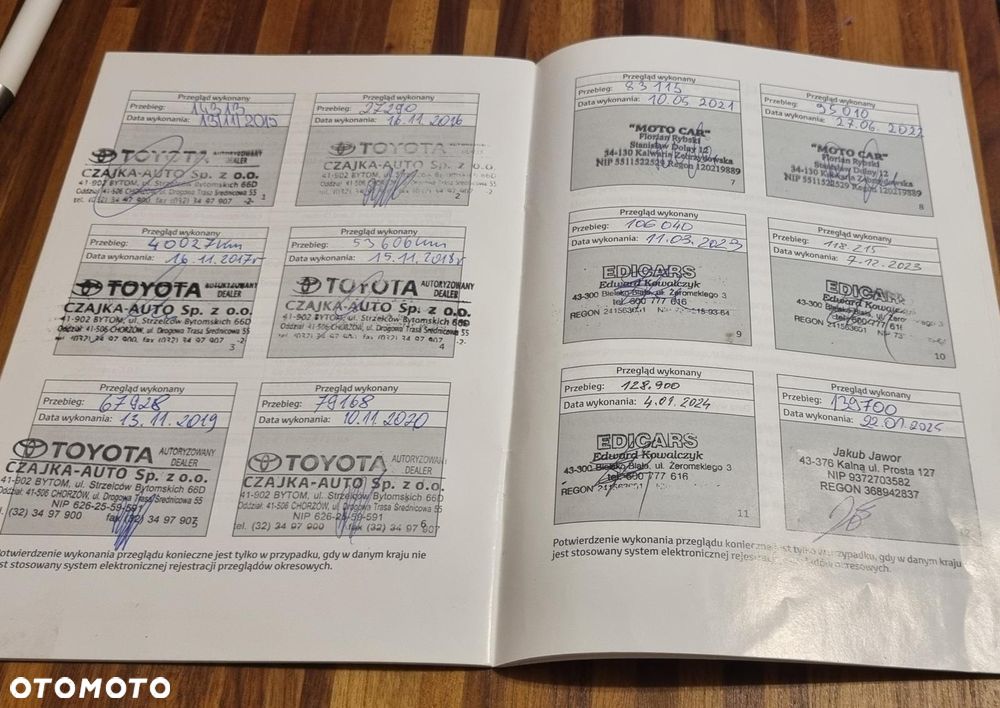 Przegląd wykonany
Przebieg: 14313
Data wykonania: 13.11.2015
TOYOTA AUTORYZOWANY DEALER
CZAJKA-AUTO Sp. z o.o.
41-902 BYTOM, ul. Strzelców Bytomskich 66D
Oddział: 41-506 CHORZÓW, ul. Drogowa Trasa Średnicowa 55
tel. (032) 34 97 900, fax (032) 34 97 907 -2-
1
Przegląd wykonany
Przebieg: 27290
Data wykonania: 16.11.2016
TOYOTA AUTORYZOWANY DEALER
CZAJKA-AUTO Sp. z o.o.
41-902 BYTOM, ul. Strzelców Bytomskich 66D
Oddział: 41-506 CHORZÓW, ul. Drogowa Trasa Średnicowa 55
tel. (032) 34 97 900, fax (032) 34 97 907 -2-
2
Przegląd wykonany
Przebieg: 40027km
Data wykonania: 16.11.2017r
TOYOTA AUTORYZOWANY DEALER
CZAJKA-AUTO Sp. z o.o.
41-902 BYTOM, ul. Strzelców Bytomskich 66D
Oddział: 41-506 CHORZÓW, ul. Drogowa Trasa Średnicowa 55
3
Przegląd wykonany
Przebieg: 53606km
Data wykonania: 15.11.2018r
TOYOTA AUTORYZOWANY DEALER
CZAJKA-AUTO Sp. z o.o.
41-902 BYTOM, ul. Strzelców Bytomskich 66D
Oddział: 41-506 CHORZÓW, ul. Drogowa Trasa Średnicowa 55
4
Przegląd wykonany
Przebieg: 67928
Data wykonania: 13.11.2019
TOYOTA AUTORYZOWANY DEALER
CZAJKA-AUTO Sp. z o.o.
41-902 BYTOM, ul. Strzelców Bytomskich 66D
Oddział: 41-506 CHORZÓW, ul. Drogowa Trasa Średnicowa 55
NIP 626-25-59-591
l. (32) 34 97 900 fax (32) 34 97 907
Przegląd wykonany
Przebieg: 79168
Data wykonania: 10.11.2020
TOYOTA AUTORYZOWANY DEALER
CZAJKA-AUTO Sp. z o.o.
41-902 BYTOM, ul. Strzelców Bytomskich 66D
Oddział: 41-506 CHORZÓW, ul. Drogowa Trasa Średnicowa 55
NIP 626-25-59-591
tel. (32) 34 97 900 fax (32) 34 97 907
6
otwierdzenie wykonania przeglądu konieczne jest tylko w przypadku, gdy w danym kraju nie
est stosowany system elektronicznej rejestracji przeglądów okresowych.
Przegląd wykonany
Przebieg: 83 115
Data wykonania: 10.05.2021
"MOTO CAR"
Florian Rybski
Stanisław Dolny 12
34-130 Kalwaria Zebrzydowska
NIP 5511522529 Regon 120219889
7
Przegląd wykonany
Przebieg: 95010
Data wykonania: 27.06.2022
"MOTO CAR"
Florian Rybski
Stanisław Dolny 12
34-130 Kalwaria Zebrzydowska
NIP 5511522529 Regon 120219889
8
Przegląd wykonany
Przebieg: 106 040
Data wykonania: 11.03.2023
EDICARS
Edward Kowalczyk
43-300 Bielsko-Biała, ul. Żeromskiego 3
tel. 600 777 616
REGON 241563601
9
Przegląd wykonany
Przebieg: 118.215
Data wykonania: 7.12.2023
EDICARS
Edward Kowalczyk
43-300 Bielsko-Biała, ul. Żeromskiego 3
tel. 600 777 616
REGON 241563601
10
Przegląd wykonany
Przebieg: 128.900
Data wykonania: 4.01.2024
EDICARS
Edward Kowalczyk
43-300 Bielsko-Biała, ul. Żeromskiego 3
600 777 616
REGON
11
Przegląd wykonany
Przebieg: 139700
Data wykonania: 22.01.2025
Jakub Jawor
43-376 Kalna ul. Prosta 127
NIP 9372703582
REGON 368942837
Potwierdzenie wykonania przeglądu konieczne jest tylko w przypadku, gdy w danym kraju
jest stosowany system elektronicznej rejestracji przeglądów okresowych.
OTOMOTO